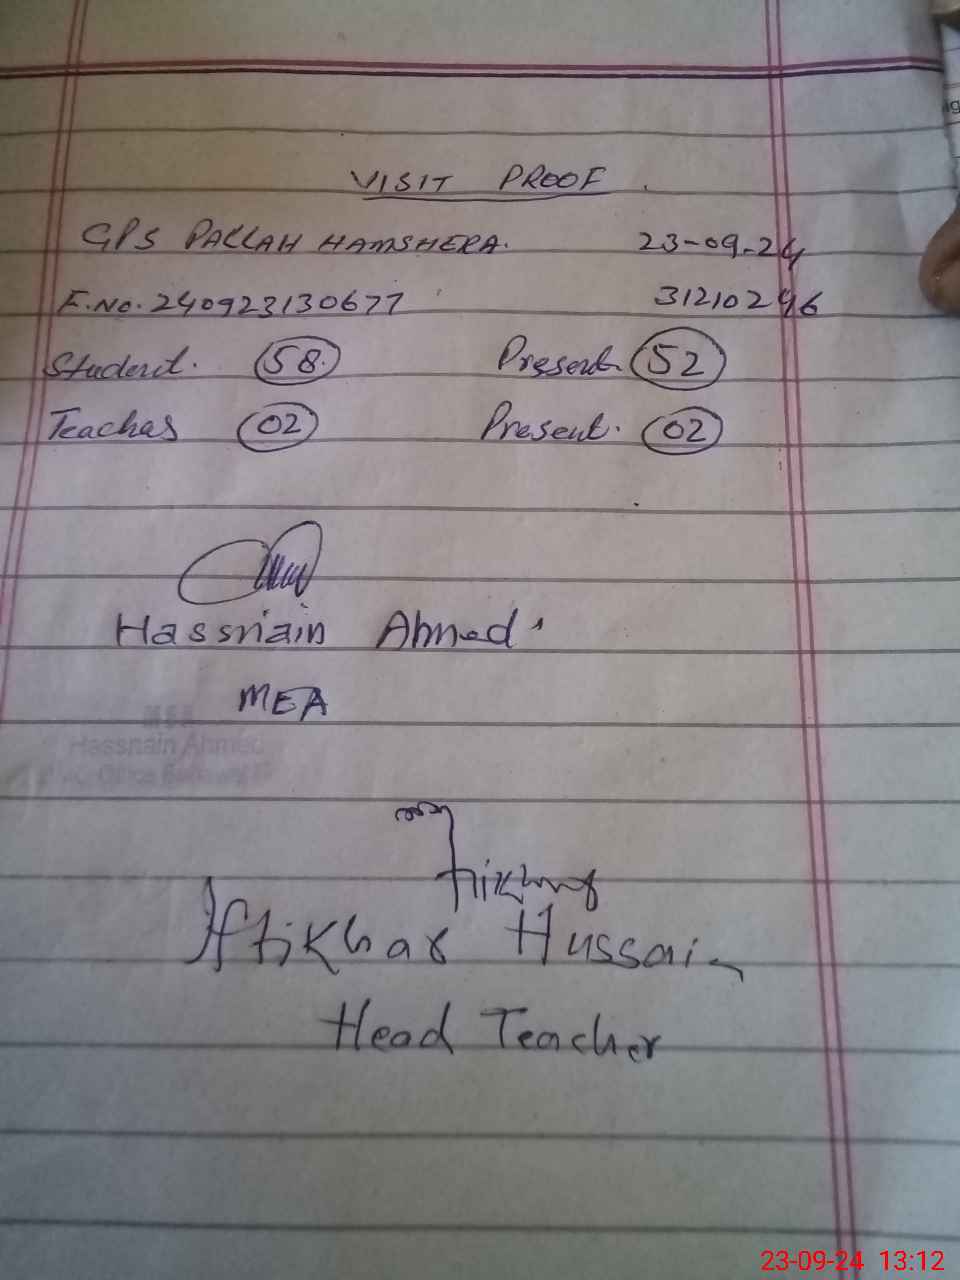 VISIT PROOF.
GPS PALLAH HAMSHERA. 23-09-24
F.No. 240923130677 31210246
Student. 58. Present 52
Teachas 02 Present. 02
Hassnain Ahmed
MEA
Hassnain Ahmed
Iftikhar Hussain
Head Teacher
23-09-24 13:12